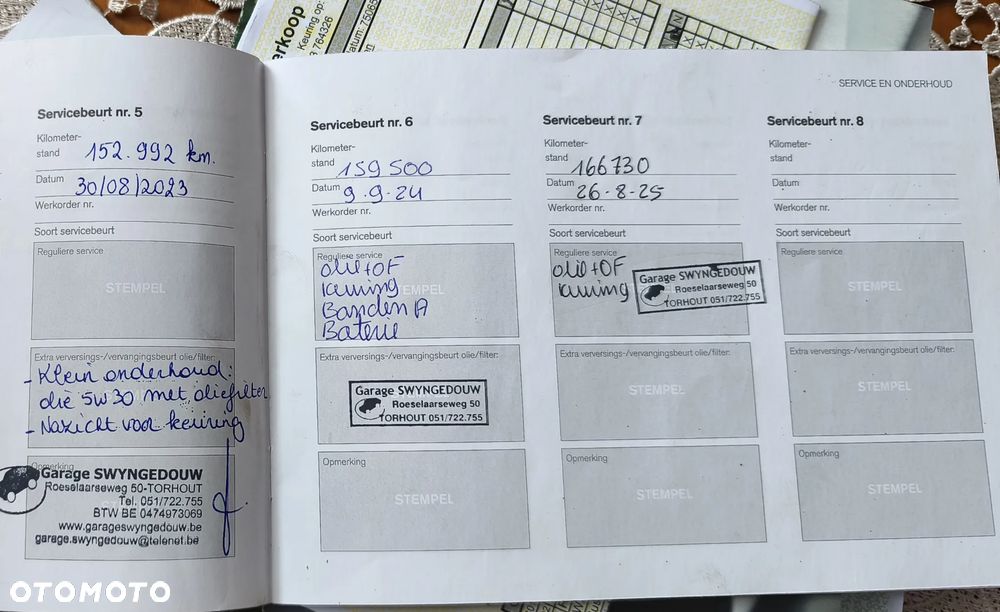 erkoop
Keuring op:
3 764326
Datum: 75065
SERVICE EN ONDERHOUD
Servicebeurt nr. 5
Kilometer-
stand 152.992 km.
Datum 30/08/2023
Werkorder nr.
Soort servicebeurt
Reguliere service
STEMPEL
Extra verversings-/vervangingsbeurt olie/filter:
- Klein onderhoud:
olie 5W30 met oliefilter
- Nazicht voor keuring
Opmerking
Garage SWYNGEDOUW
Roeselaarseweg 50-TORHOUT
Tel. 051/722.755
BTW BE 0474973069
www.garageswyngedouw.be
garage.swyngedouw@telenet.be
Servicebeurt nr. 6
Kilometer-
stand 159500
Datum 9-9-24
Werkorder nr.
Soort servicebeurt
Reguliere service
olie+OF
keuring
STEMPEL
Banden A
Baterie
Extra verversings-/vervangingsbeurt olie/filter:
Garage SWYNGEDOUW
Roeselaarseweg 50
TORHOUT 051/722.755
Opmerking
STEMPEL
Servicebeurt nr. 7
Kilometer-
stand 166730
Datum 26-8-25
Werkorder nr.
Soort servicebeurt
Reguliere service
olie+OF
keuring
Garage SWYNGEDOUW
Roeselaarseweg 50
TORHOUT 051/722.755
Extra verversings-/vervangingsbeurt olie/filter:
STEMPEL
Opmerking
STEMPEL
Servicebeurt nr. 8
Kilometer-
stand
Datum
Werkorder nr.
Soort servicebeurt
Reguliere service
STEMPEL
Extra verversings-/vervangingsbeurt olie/filter:
STEMPEL
Opmerking
STEMPEL
OTOMOTO